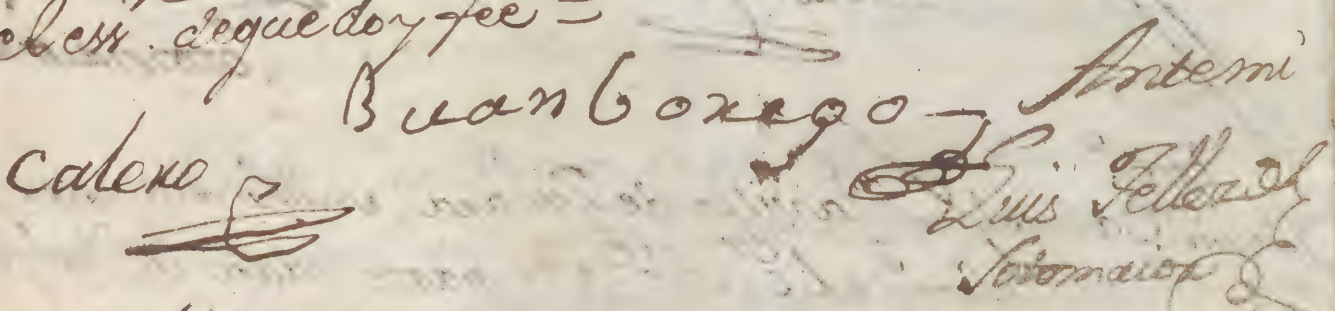 el ess. de que doy fee =
Buan Borrego
Antemi
Calero
Luis Tellez del
Sotomaior